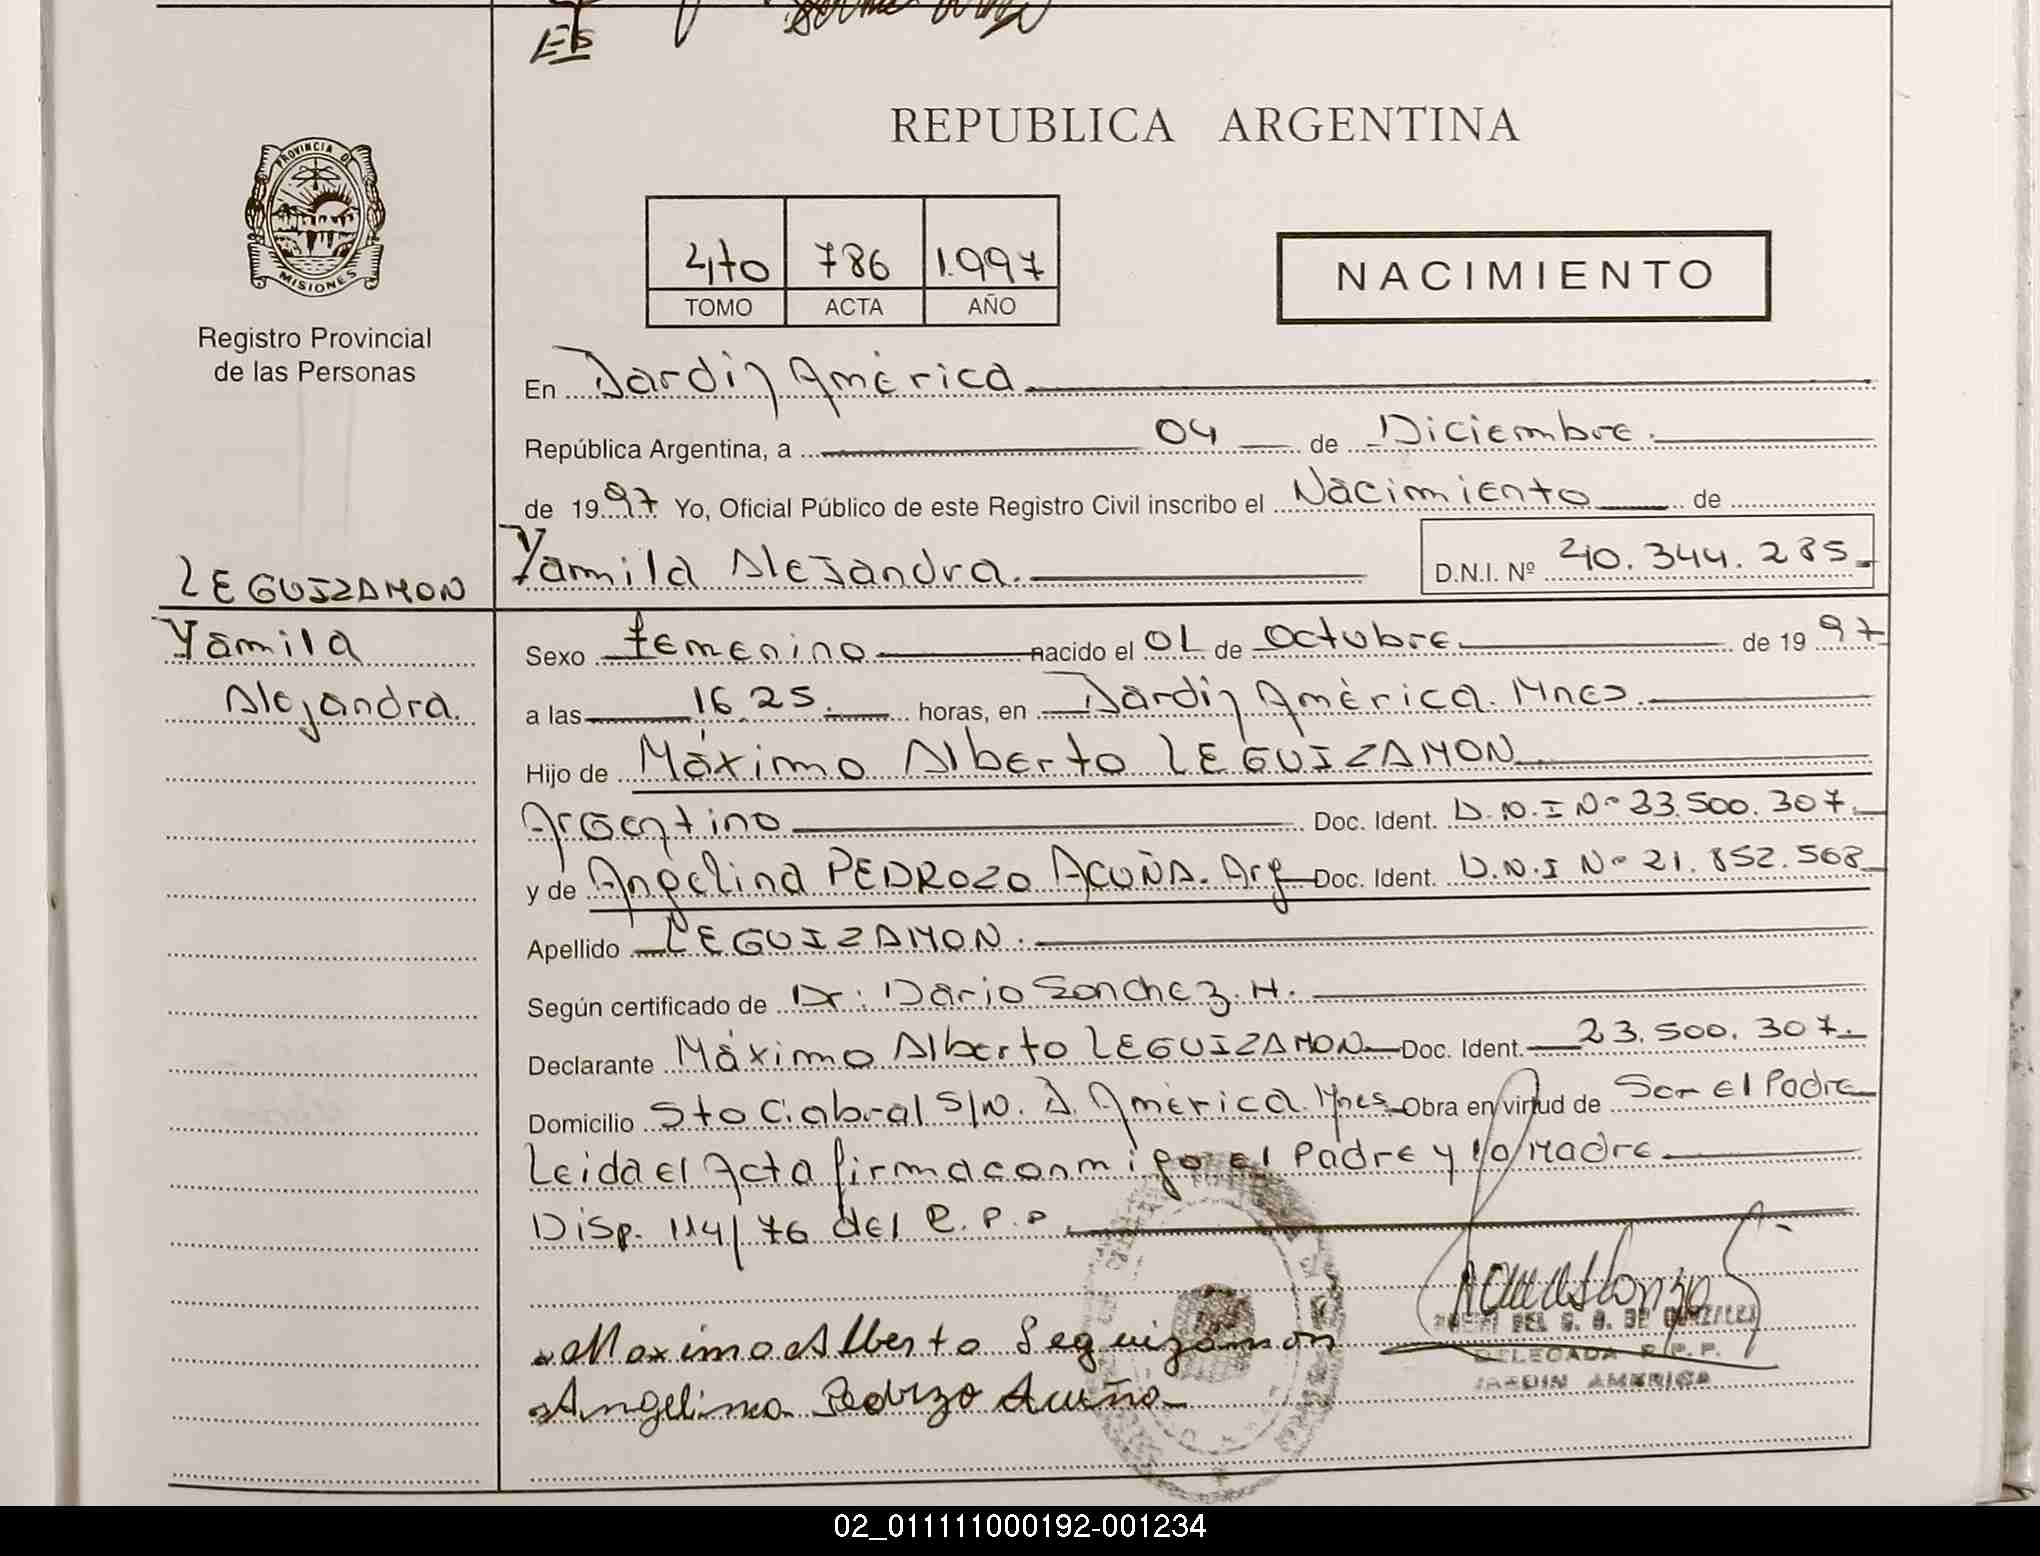 REPUBLICA ARGENTINA
PROVINCIA DE
MISIONES
Registro Provincial
de las Personas
4to 786 1.997
TOMO ACTA AÑO
NACIMIENTO
En Jardín América
República Argentina, a 04 de Diciembre.
de 1997 Yo, Oficial Público de este Registro Civil inscribo el Nacimiento de
Yamila Alejandra. D.N.I. Nº 40.344.285
LEGUIZAMON
Yamila
Alejandra.
Sexo femenino nacido el 01 de Octubre de 1997
a las 16.25. horas, en Jardín América. Mnes.
Hijo de Máximo Alberto LEGUIZAMON
Argentino Doc. Ident. D.N.I Nº 23.500.307.
y de Angelina PEDROZO ACUÑA. Arg Doc. Ident. D.N.I Nº 21.852.568
Apellido LEGUIZAMON.
Según certificado de Dr. Dario Sanchez. H.
Declarante Máximo Alberto LEGUIZAMON Doc. Ident. 23.500.307.
Domicilio Sto Cabral S/N. J. América. Mnes Obra en virtud de Ser el Padre
Leida el Acta firma conmigo el Padre y la Madre
Disp. 114/76 del R.P.P.
Maximo Alberto Leguizamon
Angelina Pedrozo Acuña
DELEGADA R.P.P.
JARDIN AMERICA
02_011111000192-001234